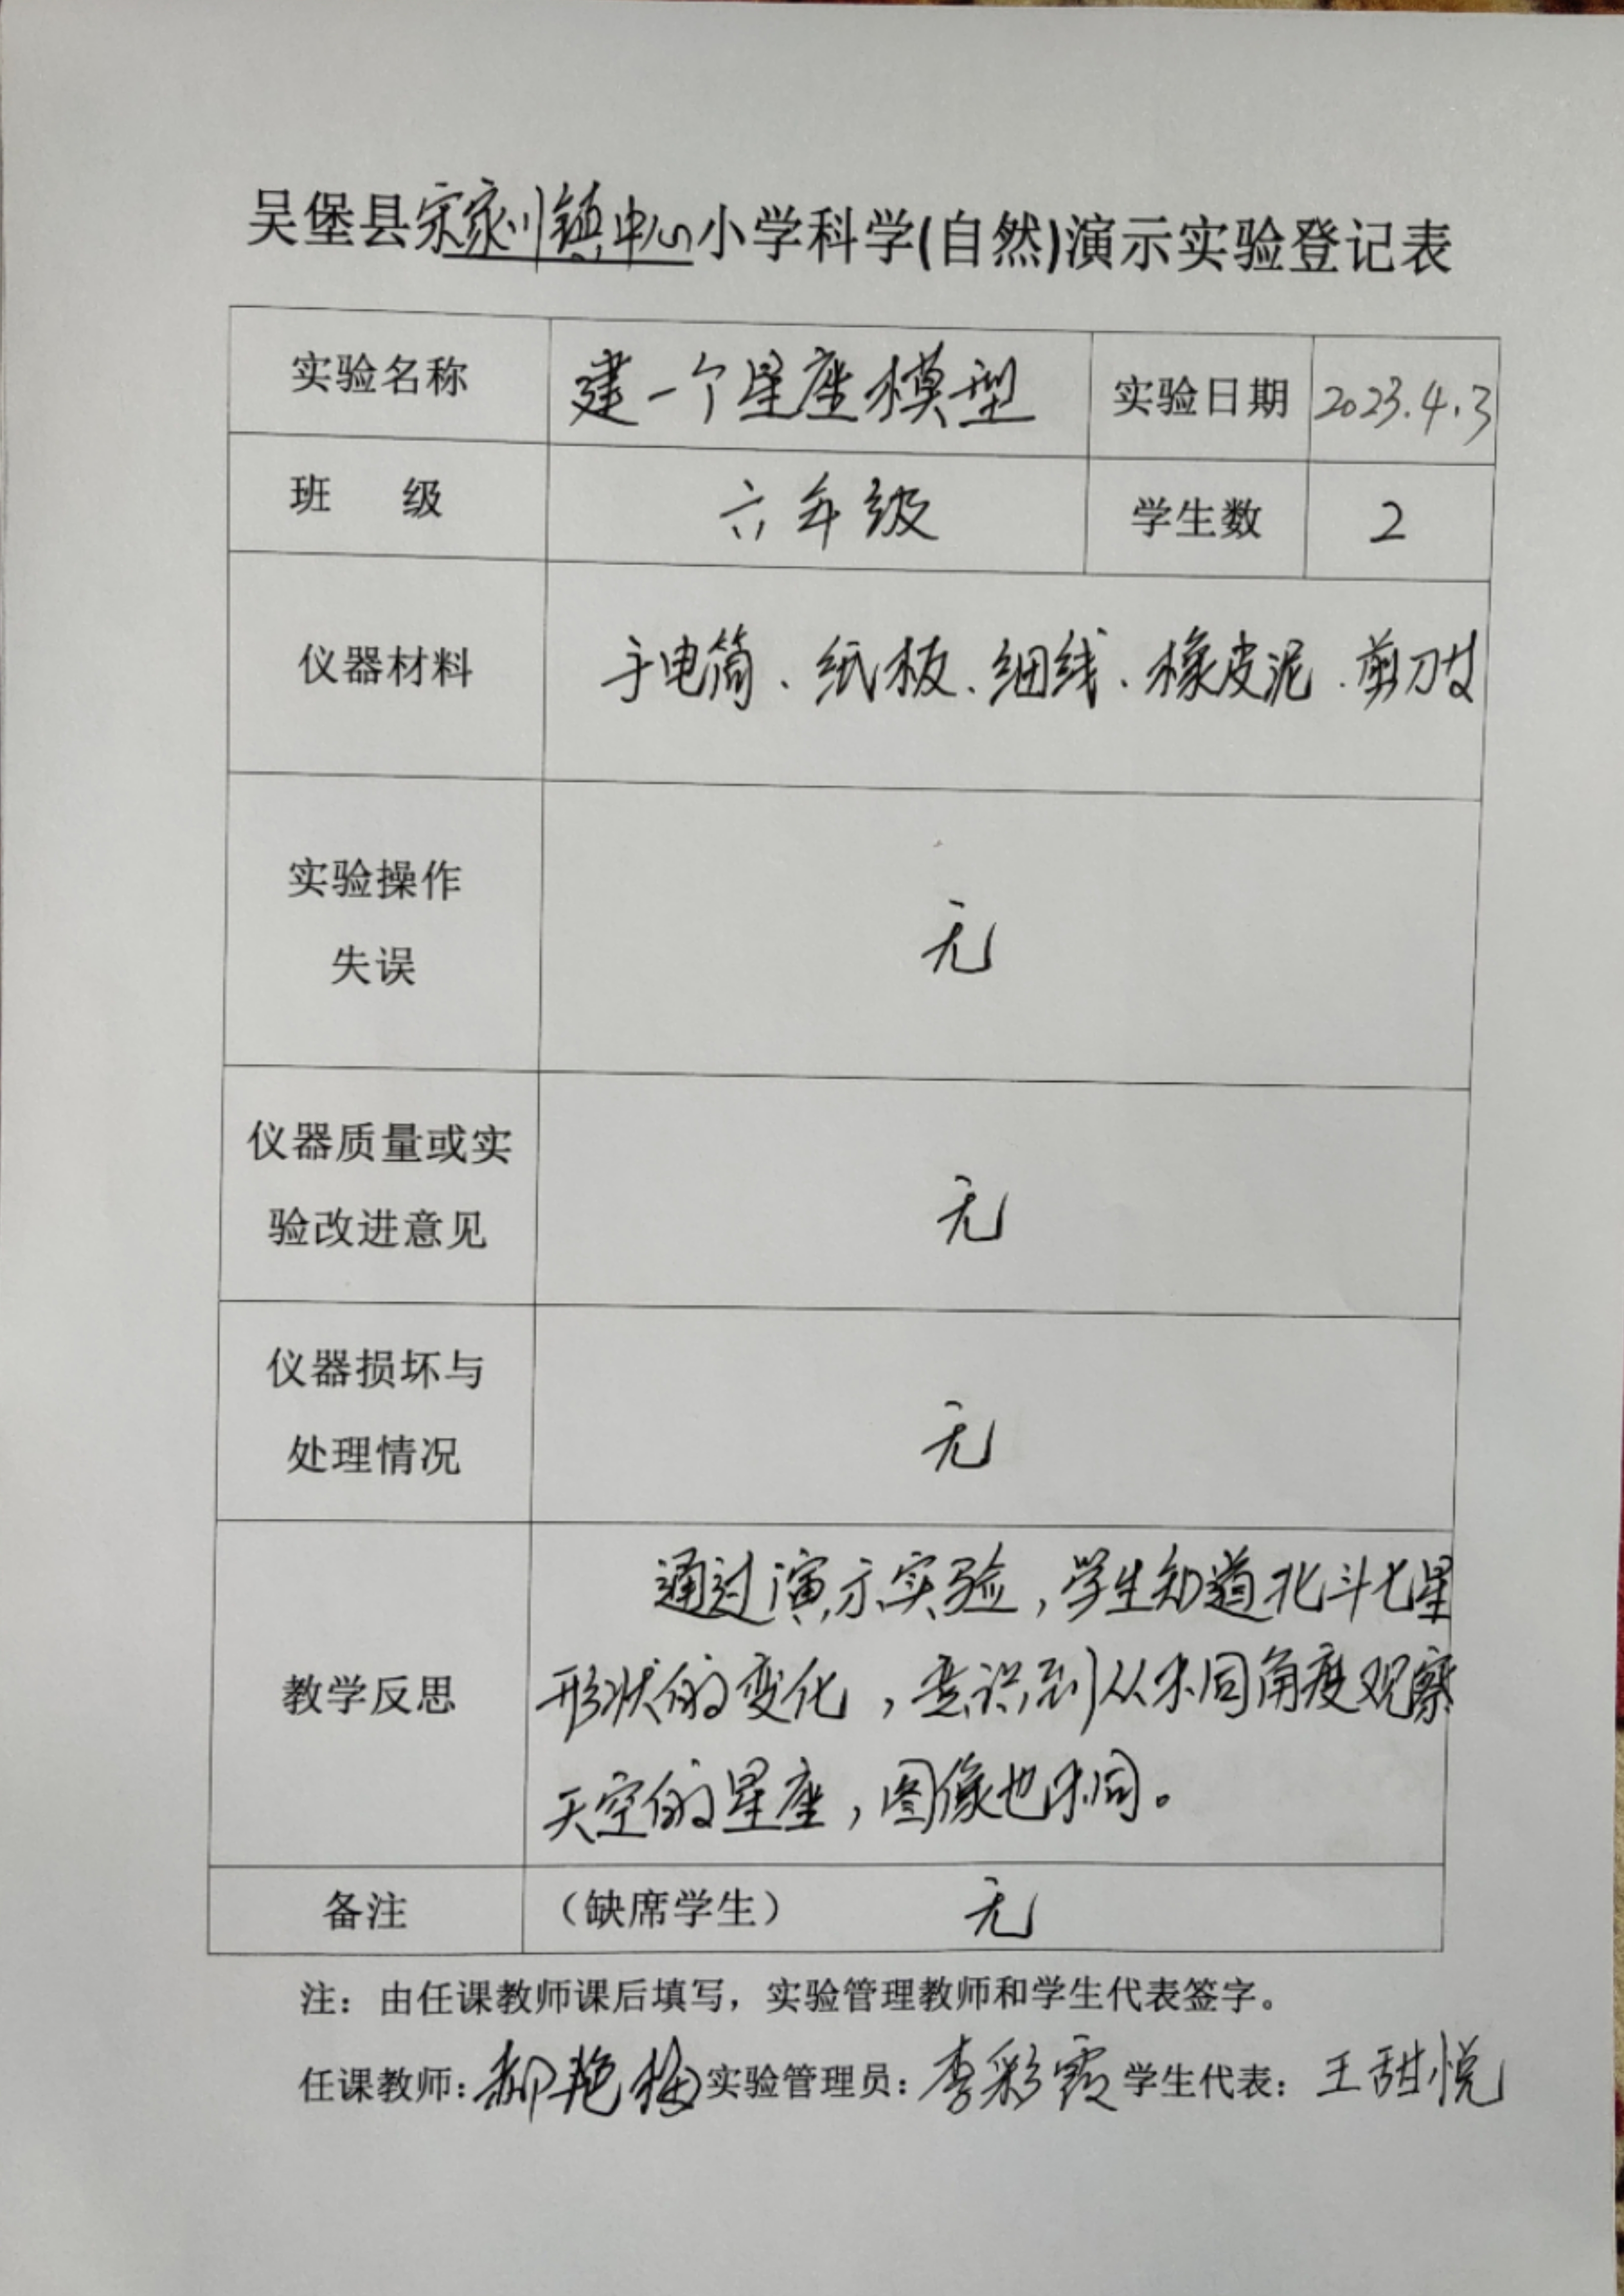 吴堡县宋家川镇中心小学科学(自然)演示实验登记表
实验名称 建一个星座模型 实验日期 2023.4.3
班 级 六年级 学生数 2
仪器材料 手电筒、纸板、细线、橡皮泥、剪刀等
实验操作
失误
无
仪器质量或实
验改进意见
无
仪器损坏与
处理情况
无
教学反思
通过演示实验,学生知道北斗七星
形状的变化,意识到从不同角度观察
天空的星座,图像也不同。
备注 (缺席学生) 无
注:由任课教师课后填写,实验管理教师和学生代表签字。
任课教师:郝艳梅 实验管理员:李彩霞 学生代表:王甜悦